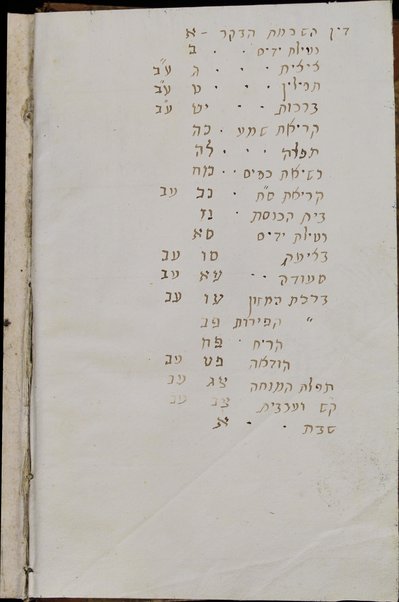 דין השכמת הבקר - א
נטילת ידים · · ב
ציצית · · · ג ע״ב
תפילין · · · ט ע״ב
ברכות · · יט ע״ב
קריאת שמע · כה
תפלה · · · לה
נשיאת כפים · · מח
קריאת ס״ת · נב עב
בית הכנסת · נז
נטילת ידים סא
בציעת סו עב
סעודה · · עא עב
ברכת המזון עו עב
״ הפירות פב
הריח · פח
הודאה פט עב
תפלת המנחה צג עב
ק״ש וערבית צב עב
שבת · · א